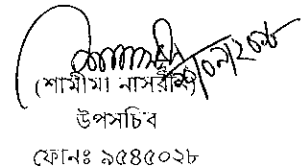 (শামীমা নাসরীন)
উপসচিব
ফোনঃ ৯৫৪৫০২৮